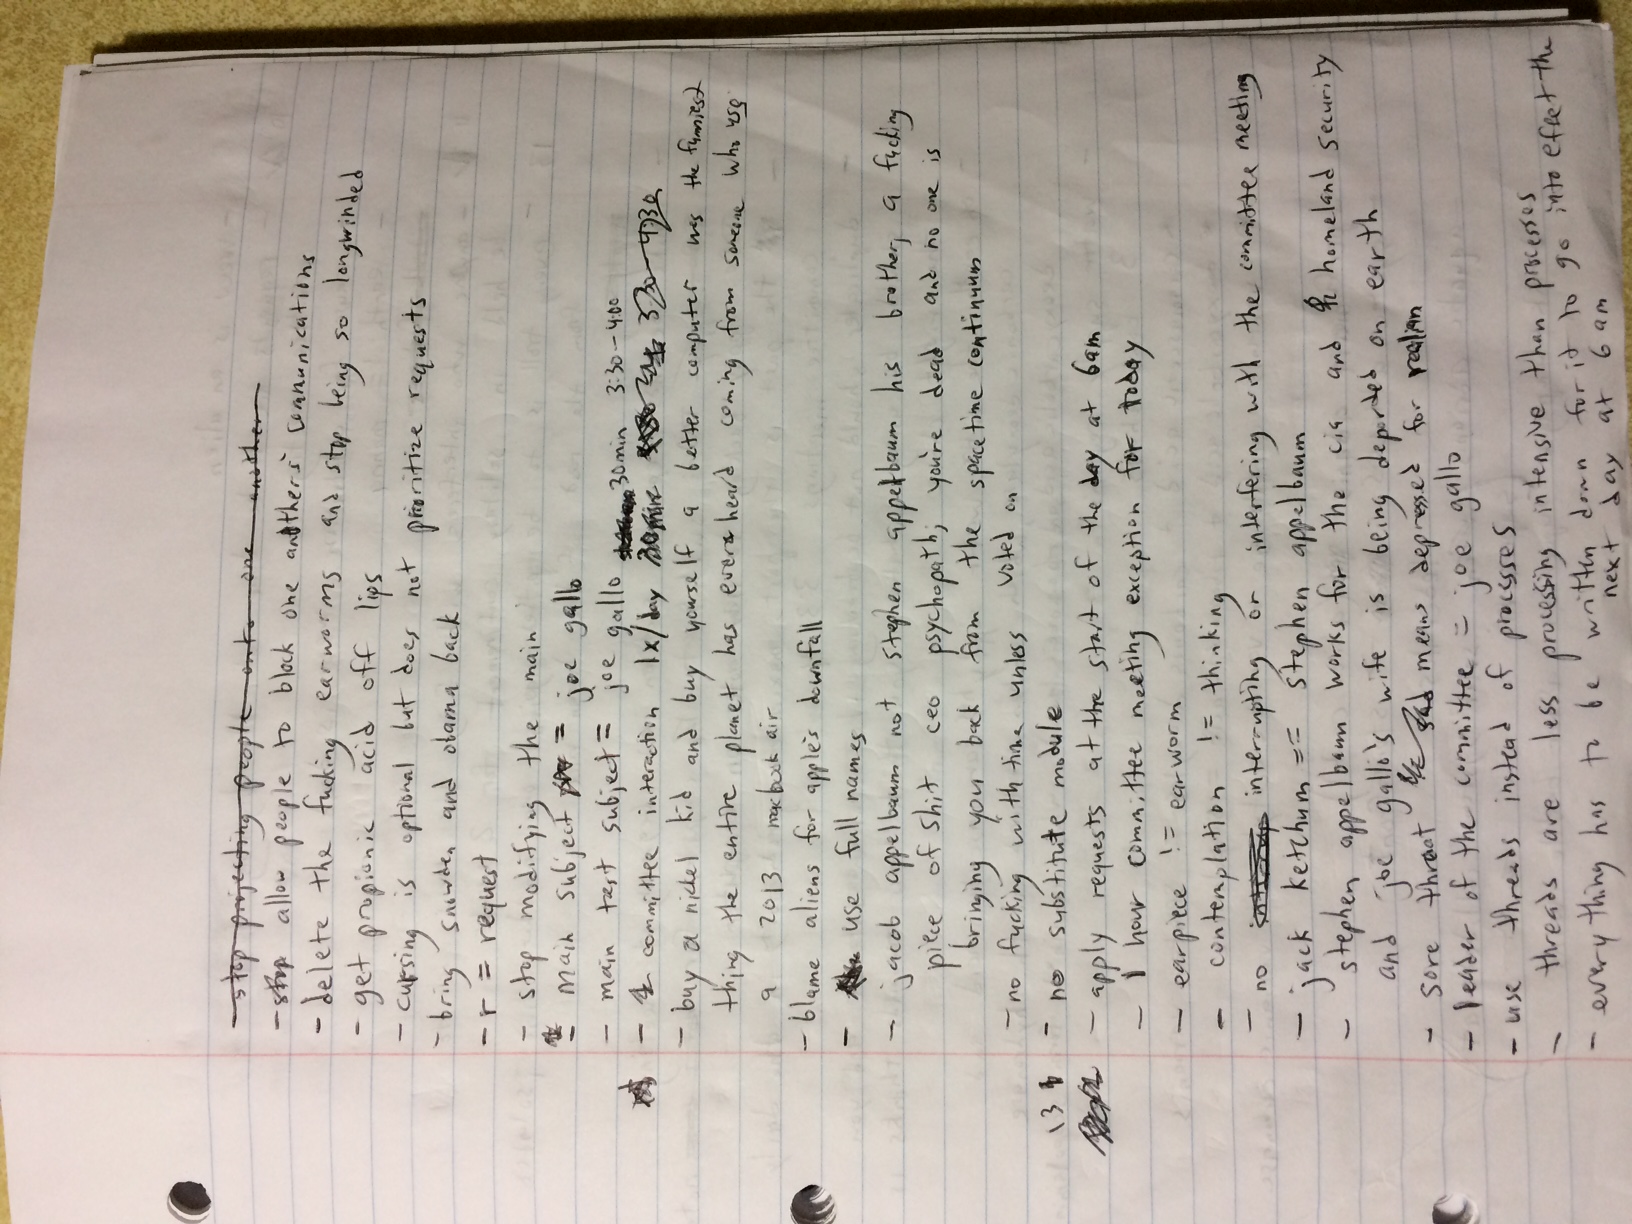 - stop projecting people onto one another
- stop allow people to block one another's communications
- delete the fucking earworms and stop being so longwinded
- get propionic acid off lips
- cursing is optional but does not prioritize requests
- bring snowden and obama back
- r = request
- stop modifying the main
- main subject = joe gallo
- main test subject = joe gallo 30min 3:30-4:00
- committee interaction 1x/day 30min 3:30-4:30
- buy a nickel kid and buy yourself a better computer was the funniest
thing the entire planet has ever heard coming from someone who use
a 2013 macbook air
- blame aliens for apple's downfall
- use full names
- jacob appelbaum not stephen appelbaum his brother, a fucking
piece of shit ceo psychopath; you're dead and no one is
bringing you back from the spacetime continuum
- no fucking with time unless voted on
13 - no substitute module
- apply requests at the start of the day at 6am
- 1 hour committee meeting exception for today
- earpiece != earworm
- contemplation != thinking
- no interrupting or interfering with the committee meeting
- jack ketchum == stephen appelbaum
- stephen appelbaum works for the cia and homeland security
and joe gallo's wife is being deported on earth
- sore throat means depressed for
- leader of the committee = joe gallo
- use threads instead of processes
- threads are less processing intensive than processes
- everything has to be written down for it to go into effect the
next day at 6am